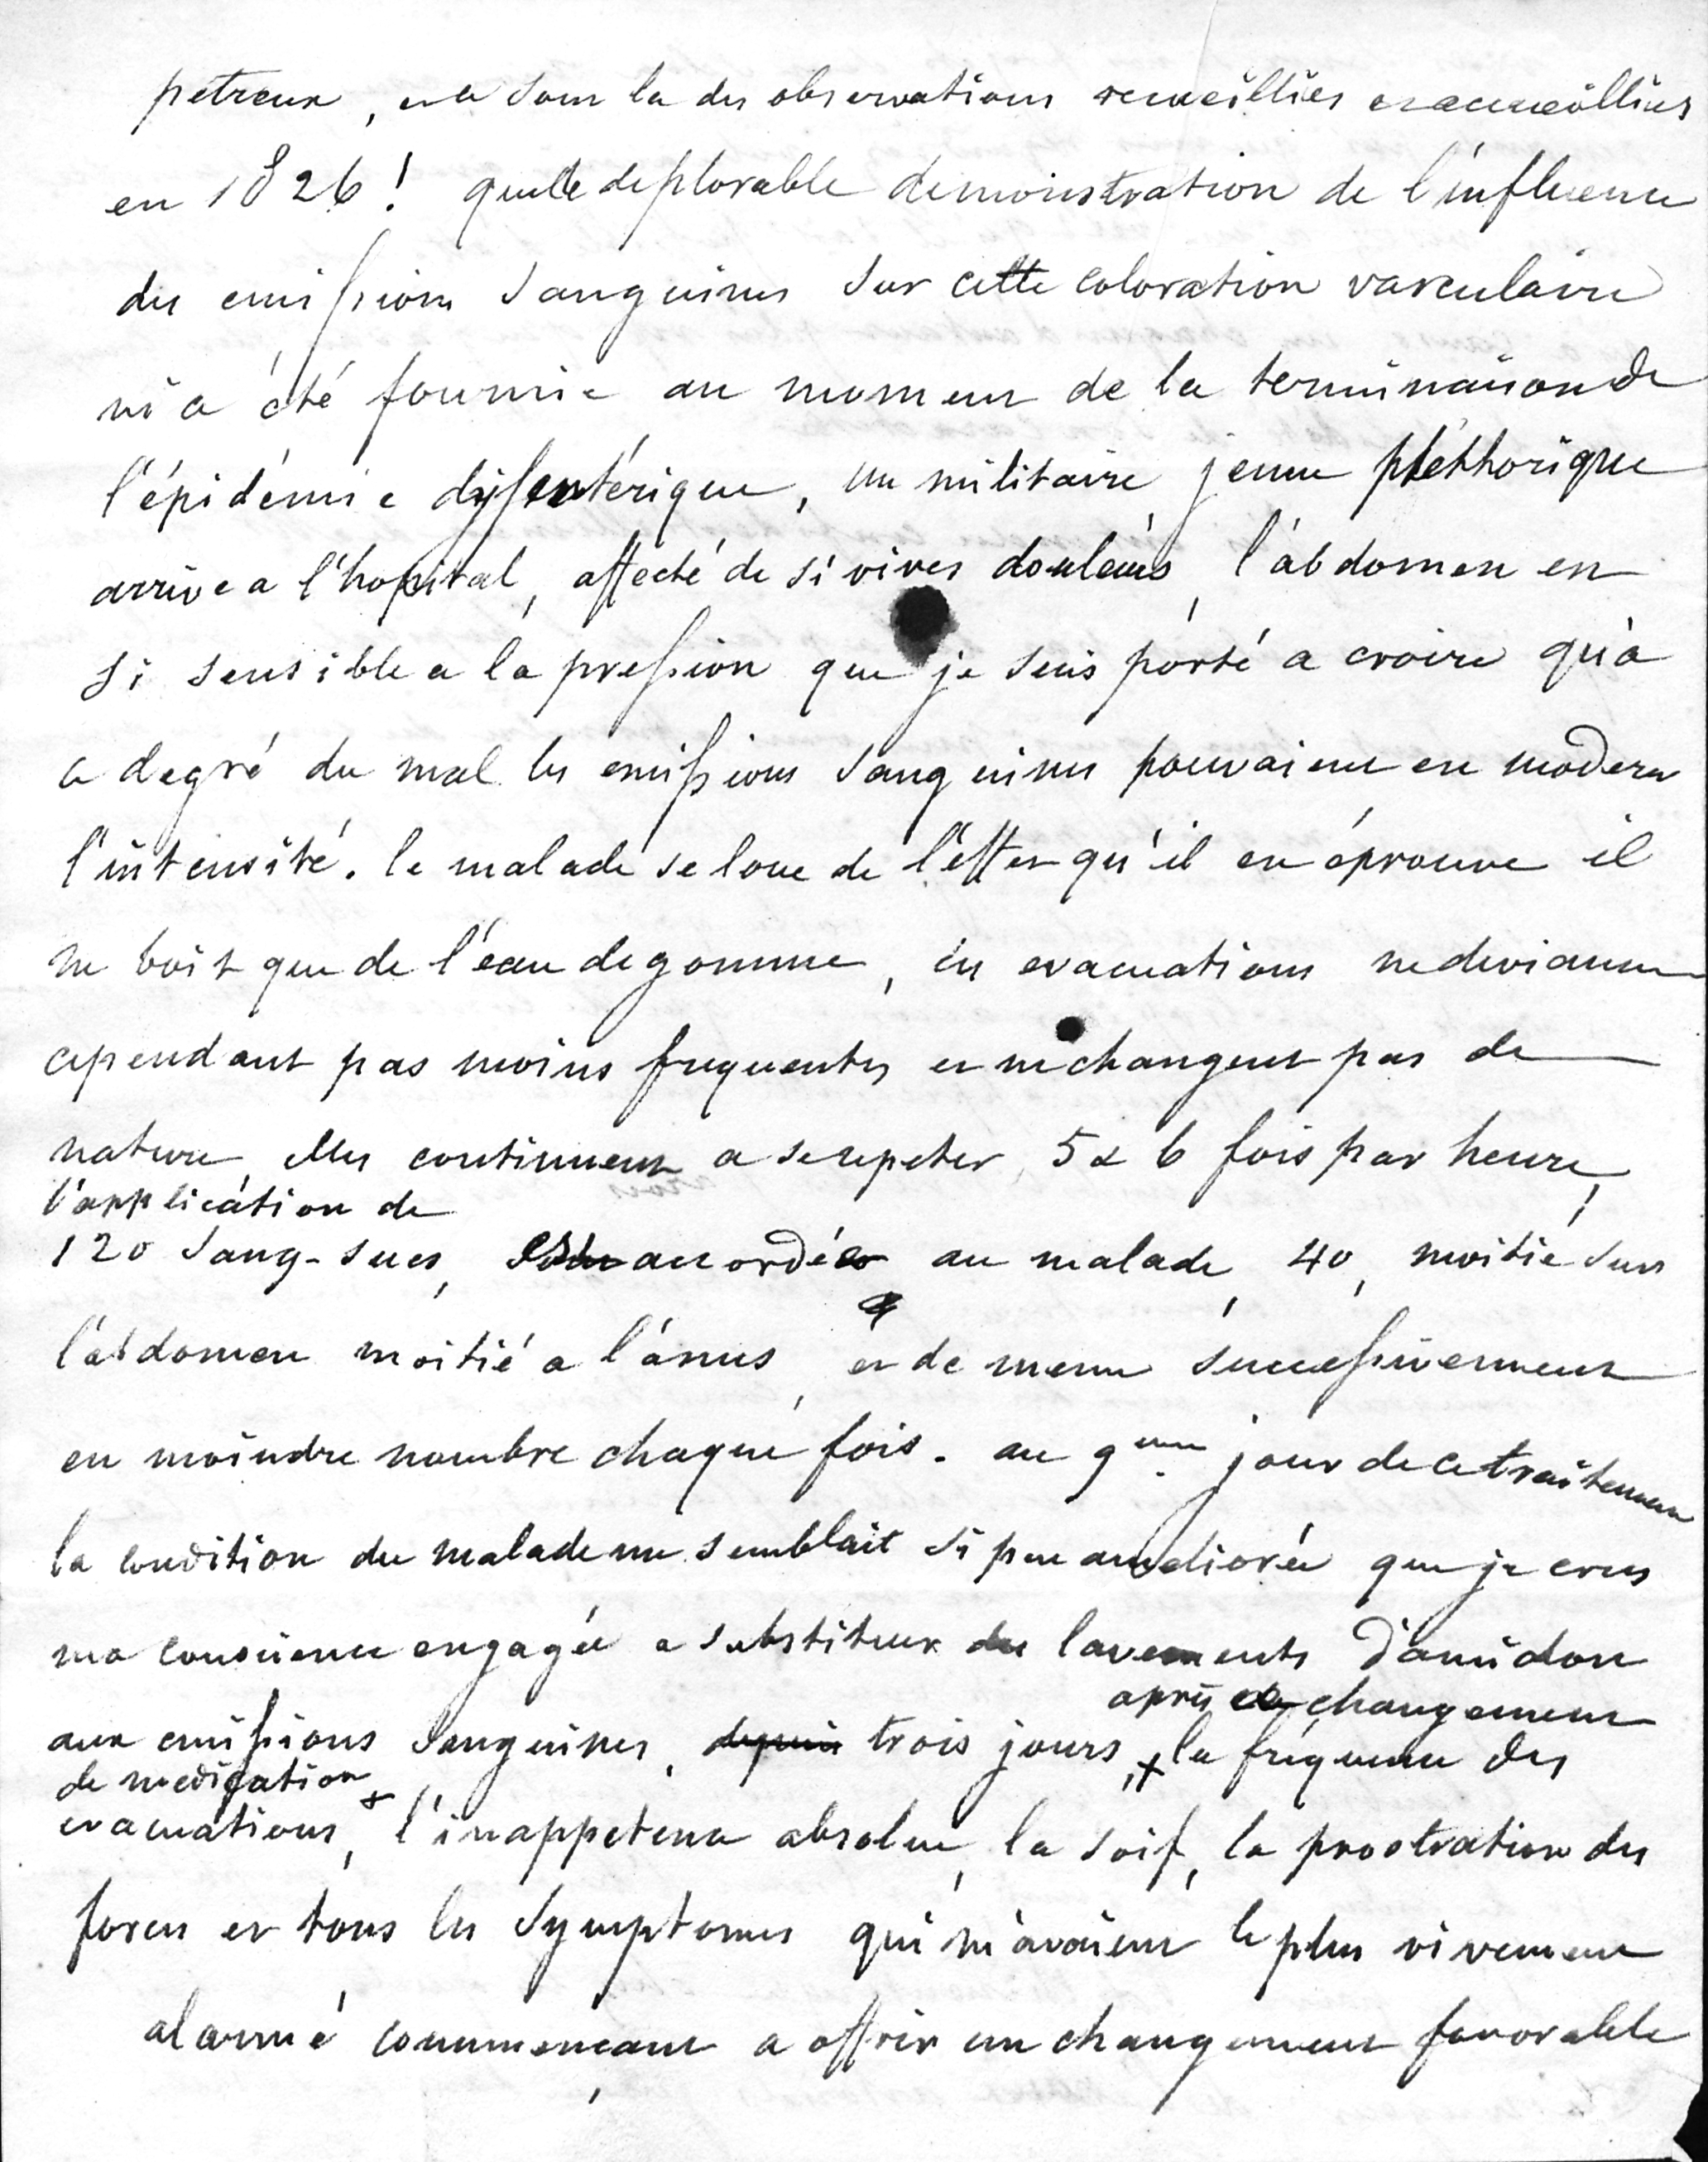 petreux, et ce sont la des observations recueillies et accueillies
en 1826! quelle deplorable demoinstration de l'influence
des emissions sanguines sur cette coloration vasculaire
m'a été fournie au moment de la terminaison de
l'épidémie dyssentérique, un militaire, jeune pléthorique
arrive a l'hopital, affecté de si vives douleurs, l'abdomen est
si sensible a la pression que je suis porté a croire qu'a
ce degré du mal les emissions sanguines pouvaient en moderer
l'intensité. le malade se loue de l'effet qu'il en éprouve il
ne boit que de l'eau de gomme, les evacuations ne deviennent
cependant pas moins frequentes et ne changent pas de
nature, elles continuent a se repeter, 5 a 6 fois par heure,
l'application de
120 sang-sues, est accordée au malade, 40, moitié sur
l'abdomen moitié a l'anus, et de meme successivement
en moindre nombre chaque fois. au 9eme jour de ce traitement
la condition du malade me semblait si peu ameliorée que je crus
ma conscience engagée a substituer des lavements d'amidon
après ce changement
aux emissions sanguines, depuis trois jours, + la fréquence des
de medication +
evacuations, l'inappetence absolue, la soif, la prostration des
forces et tous les symptomes qui m'avaient le plus vivement
alarmé commençant a offrir un changement favorable